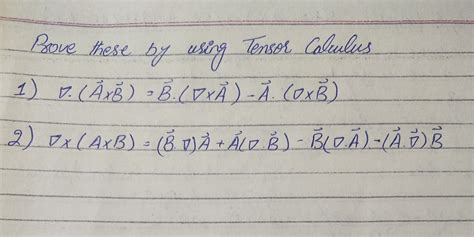 Prove these by using Tensor Calculus
1) ∇.(A⃗xB⃗) = B⃗.(∇xA⃗) - A⃗.(∇xB⃗)
2) ∇x(AxB) = (B⃗.∇)A⃗ + A⃗(∇.B⃗) - B⃗(∇.A⃗) - (A⃗.∇)B⃗